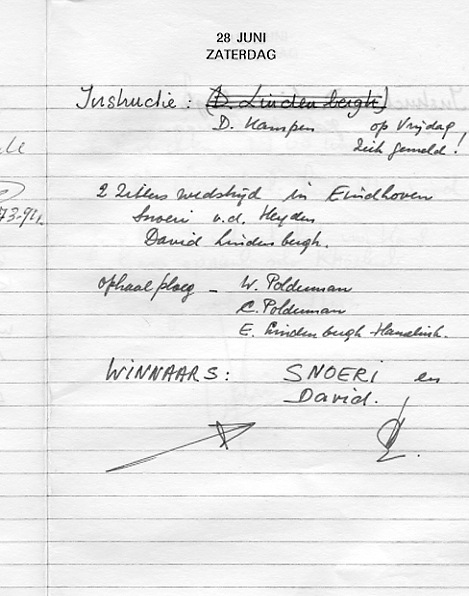 28 JUNI
ZATERDAG
Instructie : (D. Lindenbergh)
D. Kampen op Vrijdag
Ziek gemeld!
2 Zitters wedstrijd in Eindhoven
Snoeri v.d. Heyden
David Lindenbergh.
73-91,
Ophaalploeg - W. Polderman
C. Polderman
E. Lindenbergh
WINNAARS: SNOERI en
David.